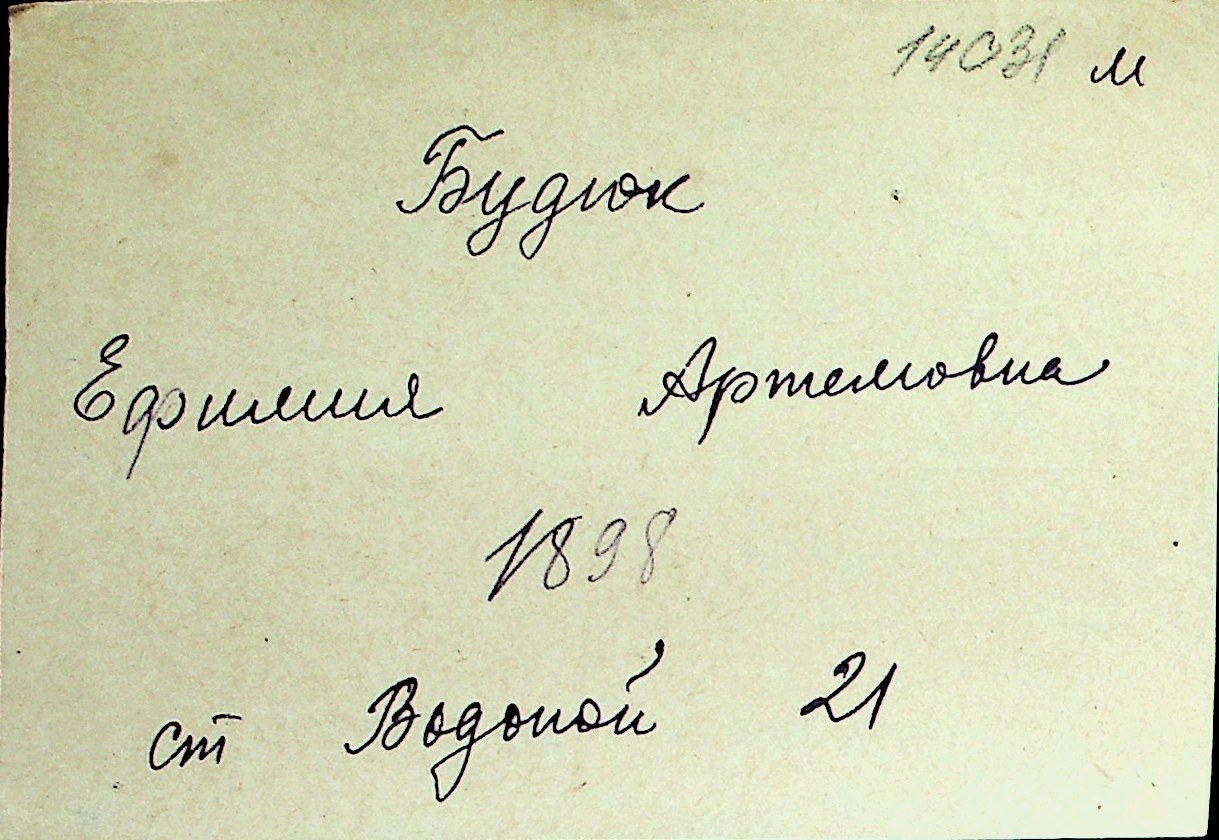 14031 м
Будюк
Ефимия Артемовна
1898
ст Водопой 21